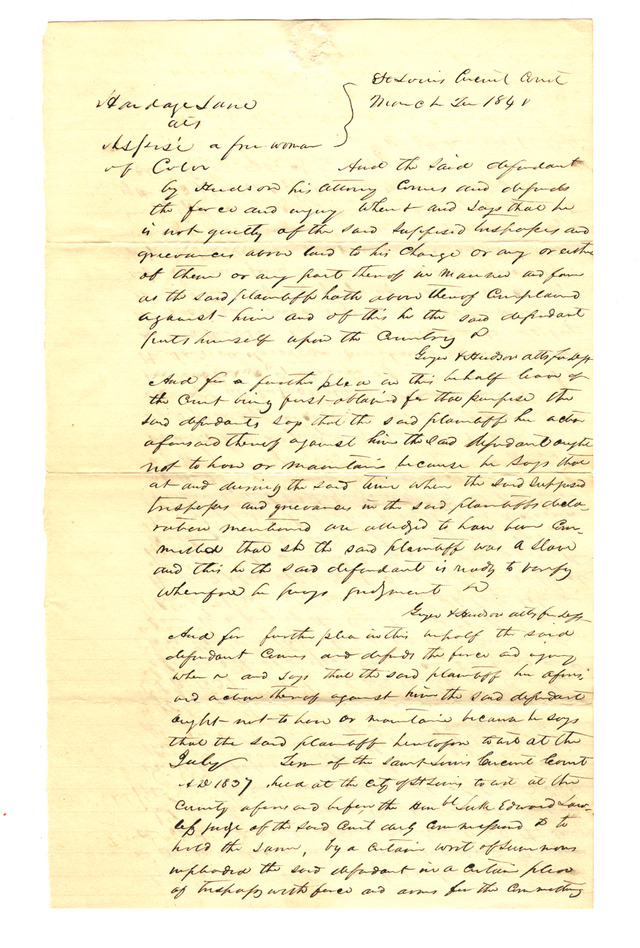 St Louis Circuit Court
Hardage Lane
March Tm 1841
ads
a free woman
of Color And the said defendant
by Hudson his attorney Comes and defends
the force and injury when &c and says that he
is not guilty of the said supposed trespasses and
grievances above laid to his charge or any or either
of them or any part thereof in manner and form
as the said plaintiff hath above thereof Complained
against him and of this he the said defendant
puts himself upon the Country &c
Geyer & Hudson atts for deft
And for a further plea in this behalf leave of
the Court being first obtained for that purpose the
said defendants says that the said plaintiff her action
aforesaid thereof against him the said defendant ought
not to have or maintain because he says that
at and during the said time when the said supposed
trespasses and grievances in the said plaintiffs decla-
ration mentioned are alledged to have been Com-
mitted that she the said plaintiff was a Slave
and this he the said defendant is ready to verify
wherefore he prays judgment &c
Geyer & Hudson atts for deft
And for further plea in this behalf the said
defendant Comes and defends the force and injury
when &c and says that the said plaintiff her afores-
aid action thereof against him the said defendant
ought not to have or maintain because he says
that the said plaintiff heretofore to wit at the
July Term of the Saint Louis Circuit Court
A D 1837 held at the City of St Louis to wit at the
County aforesaid before the Honble Luke Edward Law-
less judge of the said Court duly Commissioned &c to
hold the same, by a certain writ of summons
impleaded the said defendant in a certain plea
of trespass with force and arms for the Committing